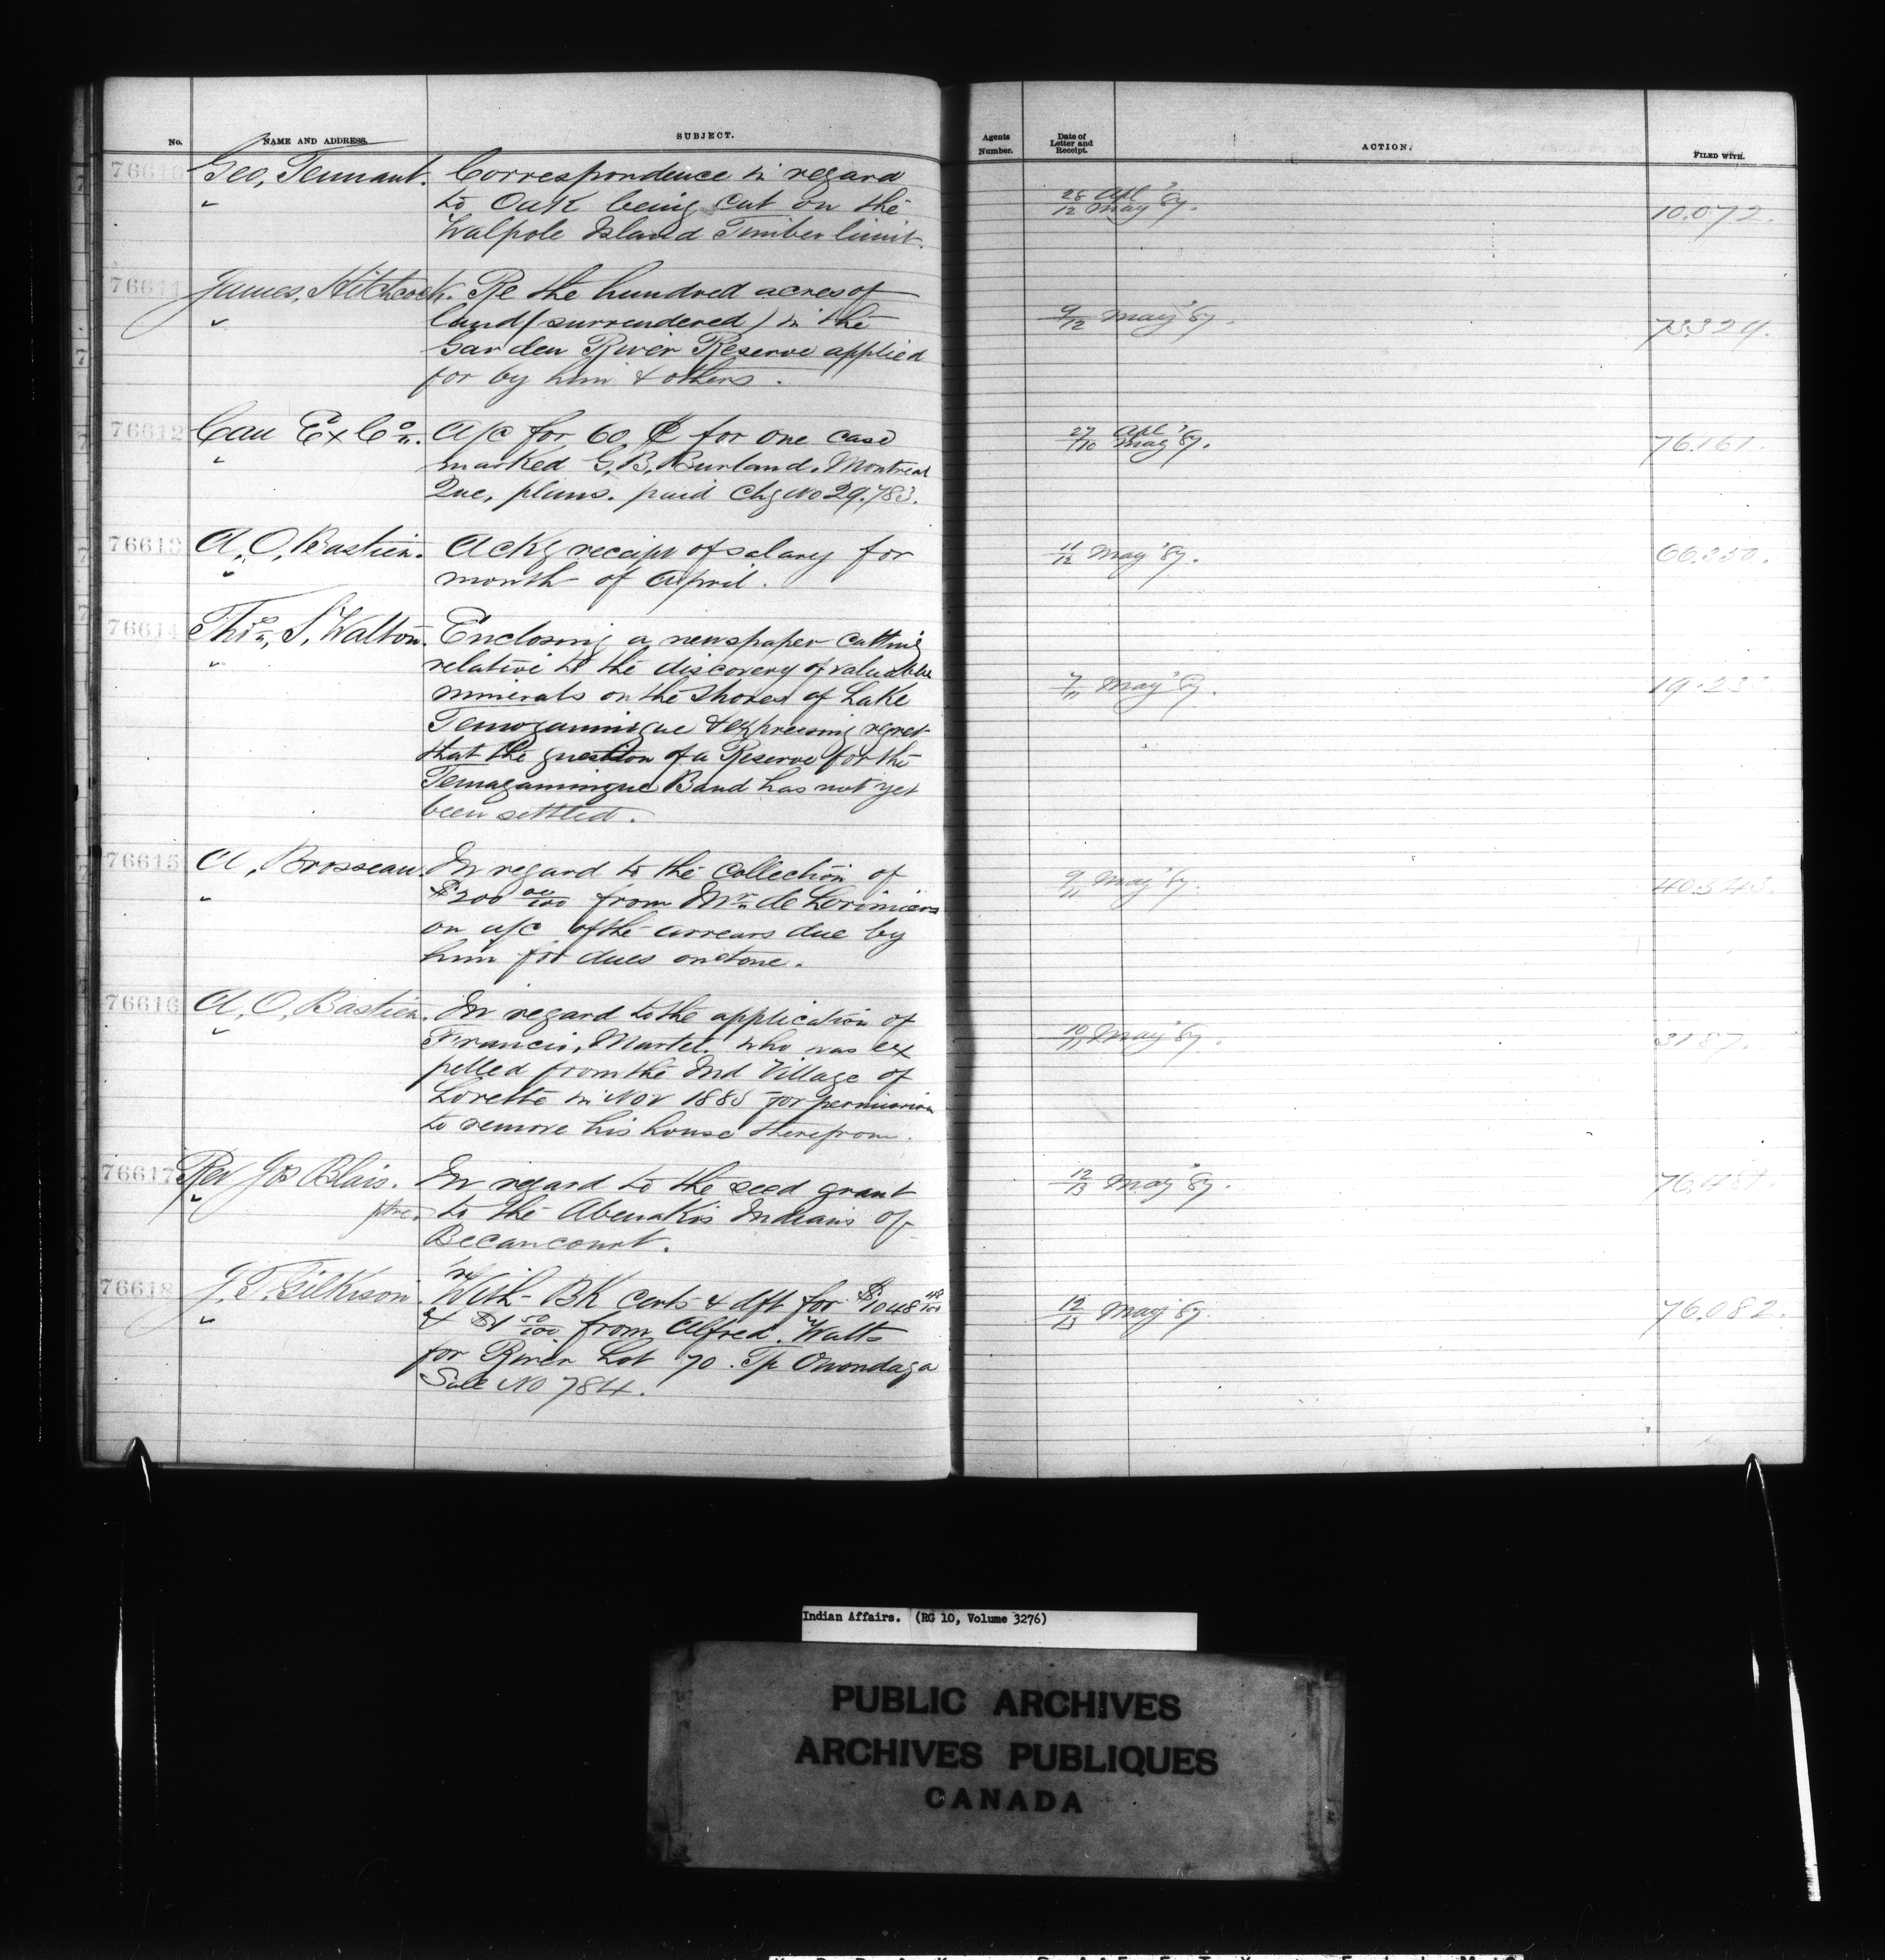 No. NAME AND ADDRESS. SUBJECT. Agents Number. Date of Letter and Receipt. ACTION. FILED WITH.
76610 Geo, Tennant. Correspondence in regard
to Oak being cut on the 28/12 Apl/May '87. 10.072.
Walpole Island Timber limit.
76611 James, Hitchcock. Re the hundred acres of
land (surrendered) in the 9/12 May '87. 73.324.
Garden River Reserve applied
for by him & others.
76612 Can Ex Co. A/c for 60. ¢ for one case 27/10 Apl/May '87. 76.161.
marked G, B, Burland. Montreal
Que, plans. paid Chg No 29.783.
76613 A, O, Bastien. Ackg receipt of salary for 11/12 May '87. 66.350.
month of April.
76614 Thos, S, Walton. Enclosing a newspaper cutting
relative to the discovery of valuable
minerals on the Shores of Lake 7/11 May '87.
Temogamingue & expressing regret
that the question of a Reserve for the
Temagamingue Band has not yet
been settled.
76615 A, Brosseau. In regard to the Collection of 9/11 May '87. 40.543.
$200 00/100 from Mr. de Lorimiers
on a/c of the arrears due by
him for dues on stone.
76616 A, O, Bastien. In regard to the application of
Francis, Martel. who was ex 10/11 May '87. 3187.
pelled from the Ind Village of
Lorette in Nov 1885 for permission
to remove his house therefrom.
76617 Rev Jos Blais. In regard to the seed grant 12/13 May '87.
ptre. to the Abenakis Indians of
Becancourt.
76618 J. T. Gilkison. With BK certs & dft for $1048 48/100 12/13 May '87. 76.082.
& $1 50/100 from Alfred. Watts
for River Lot 70. Tp Onondaga
Sale No 784.
Indian Affairs. (RG 10, Volume 3276)
PUBLIC ARCHIVES
ARCHIVES PUBLIQUES
CANADA